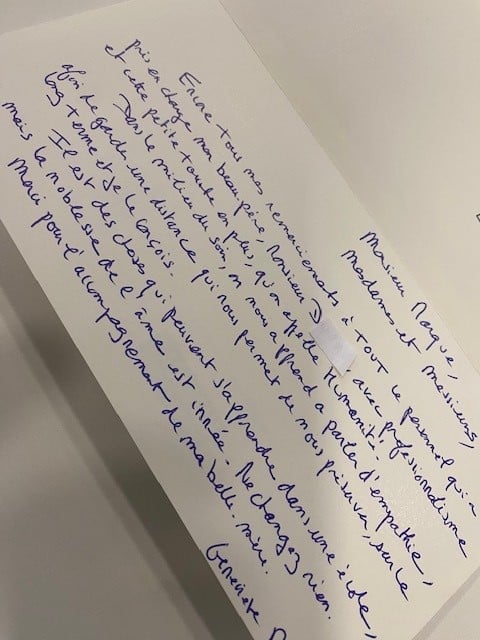 Monsieur Marque,
Madames et Messieurs,
Encore tous mes remerciements à TOUT le personnel qui a
pris en charge mon beau père, Monsieur D avec professionnalisme
et cette petite touche en plus, qu'on appelle Humanité.
Dans le milieu du soin, on nous apprend a parler d'empathie,
afin de garder une distance qui nous permet de nous préserver, sur le
long terme et je le conçois.
Il est des choses qui peuvent s'apprendre dans une école,
mais la noblesse de l'âme est innée. Ne changez rien.
Merci pour l'accompagnement de ma belle-mère.
Geneviève D